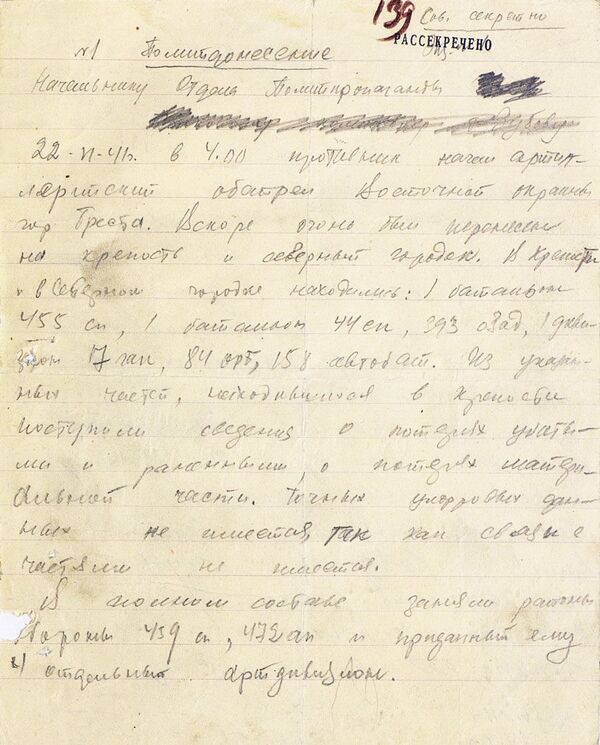 139 Сов. секретно
РАССЕКРЕЧЕНО
№1 Политдонесение
Начальнику Отдела Политпропаганды
22-VI-41г. в 4.00 противник начал артил-
лерийский обстрел Восточной окраины
гор Бреста. Вскоре огонь был перенесен
на крепость и северный городок. В Крепости
и в Северном городке находились: 1 батальон
455 сп, 1 батальон 44 сп, 393 озад, 1 диви-
зион 17 гап, 84 орб, 158 автобат. Из указан-
ных частей, находившихся в крепости
поступили сведения о потерях убиты-
ми и ранеными, о потерях матери-
альной части. Точных цифровых дан-
ных не имеется, так как связи с
частями не имеется.
В полном составе заняли районы
обороны 459 сп, 472 ап и приданный ему
отдельный артдивизион.